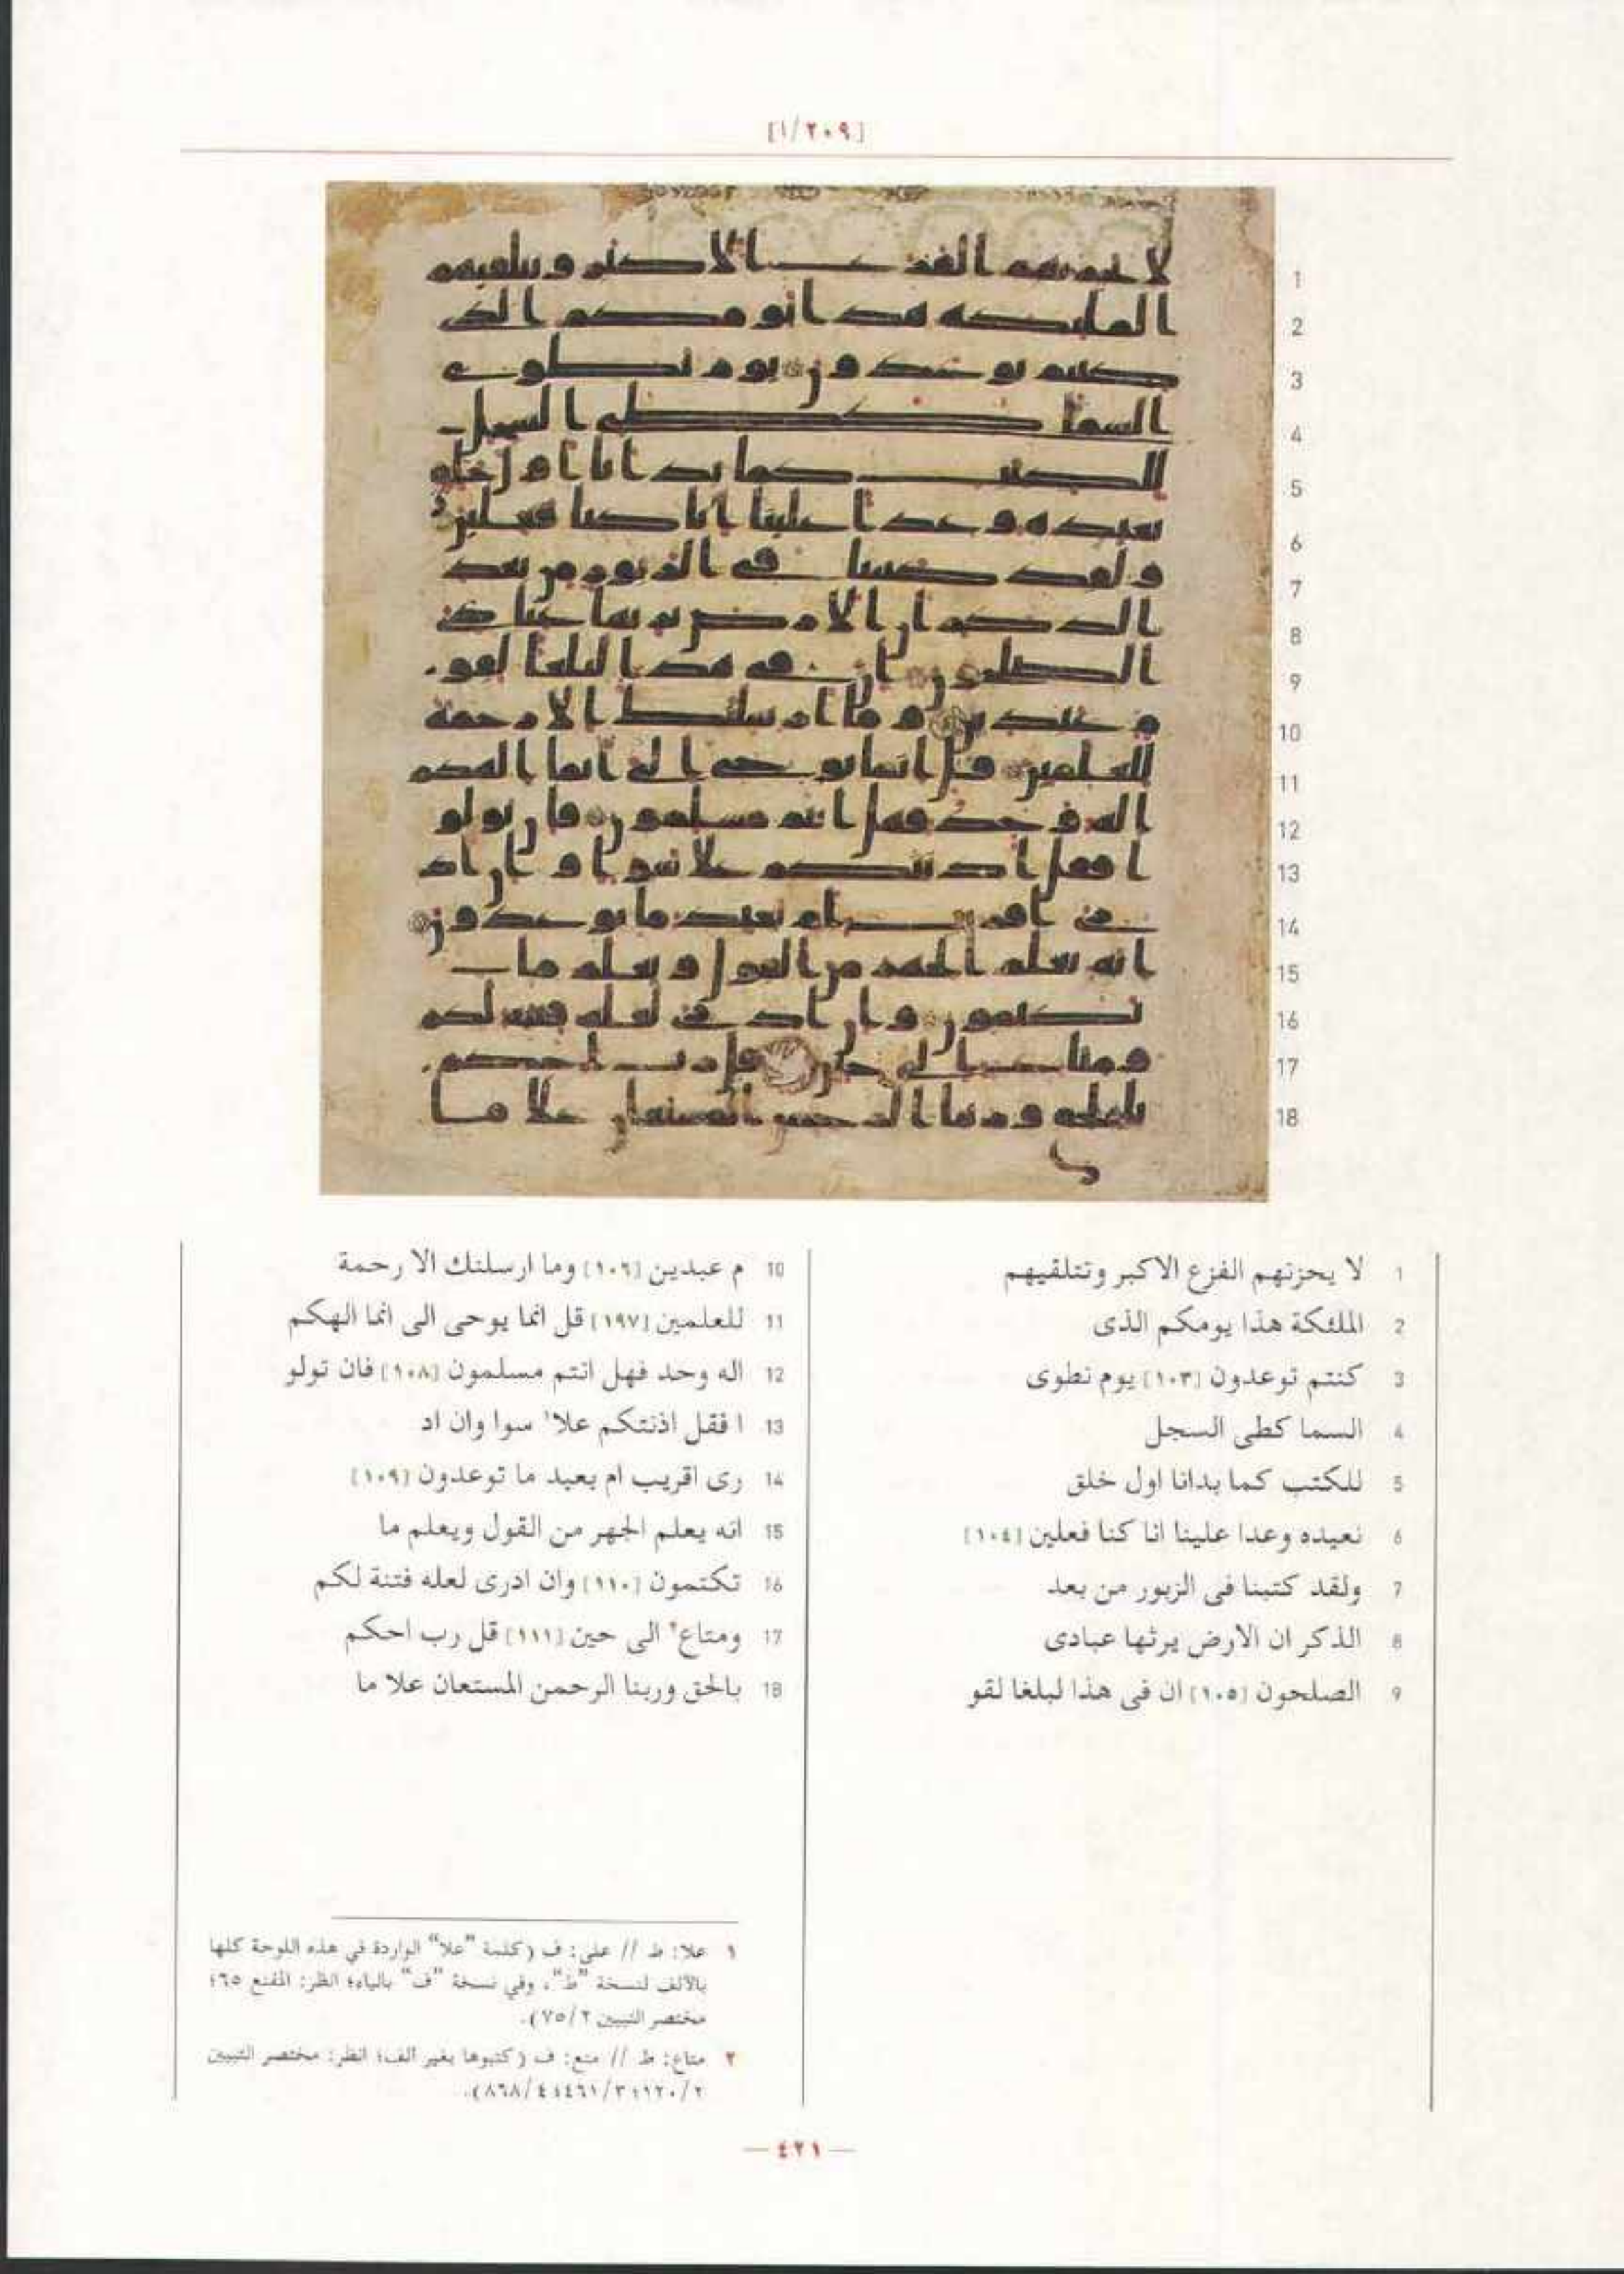 [٢٠٩/١]
1 لا يحزنهم الفزع الاكبر وتتلقيهم
2 الملئكة هذا يومكم الذى
3 كنتم توعدون [١٠٣] يوم نطوى
4 السما كطى السجل
5 للكتب كما بدانا اول خلق
6 نعيده وعدا علينا انا كنا فعلين [١٠٤]
7 ولقد كتبنا فى الزبور من بعد
8 الذكر ان الارض يرثها عبادى
9 الصلحون [١٠٥] ان فى هذا لبلغا لقو
10 م عبدين [١٠٦] وما ارسلنك الا رحمة
11 للعلمين [١٩٧] قل انما يوحى الى انما الهكم
12 اله وحد فهل انتم مسلمون [١٠٨] فان تولو
13 ا فقل اذنتكم علا١ سوا وان اد
14 رى اقريب ام بعيد ما توعدون [١٠٩]
15 انه يعلم الجهر من القول ويعلم ما
16 تكتمون [١١٠] وان ادرى لعله فتنة لكم
17 ومتاع٢ الى حين [١١١] قل رب احكم
18 بالحق وربنا الرحمن المستعان علا ما
١ علا: ط // على: ف (كلمة "علا" الواردة في هذه اللوحة كلها
بالألف لنسخة "ط"، وفي نسخة "ف" بالياء؛ انظر: المقنع ٦٥؛
مختصر التبيين ٧٥/٢).
٢ متاع: ط // متع: ف (كتبوها بغير الف؛ انظر: مختصر التبيين
١٢٠/٢؛ ٤٦١/٣؛ ٨٦٨/٤).
— ٤٢١ —